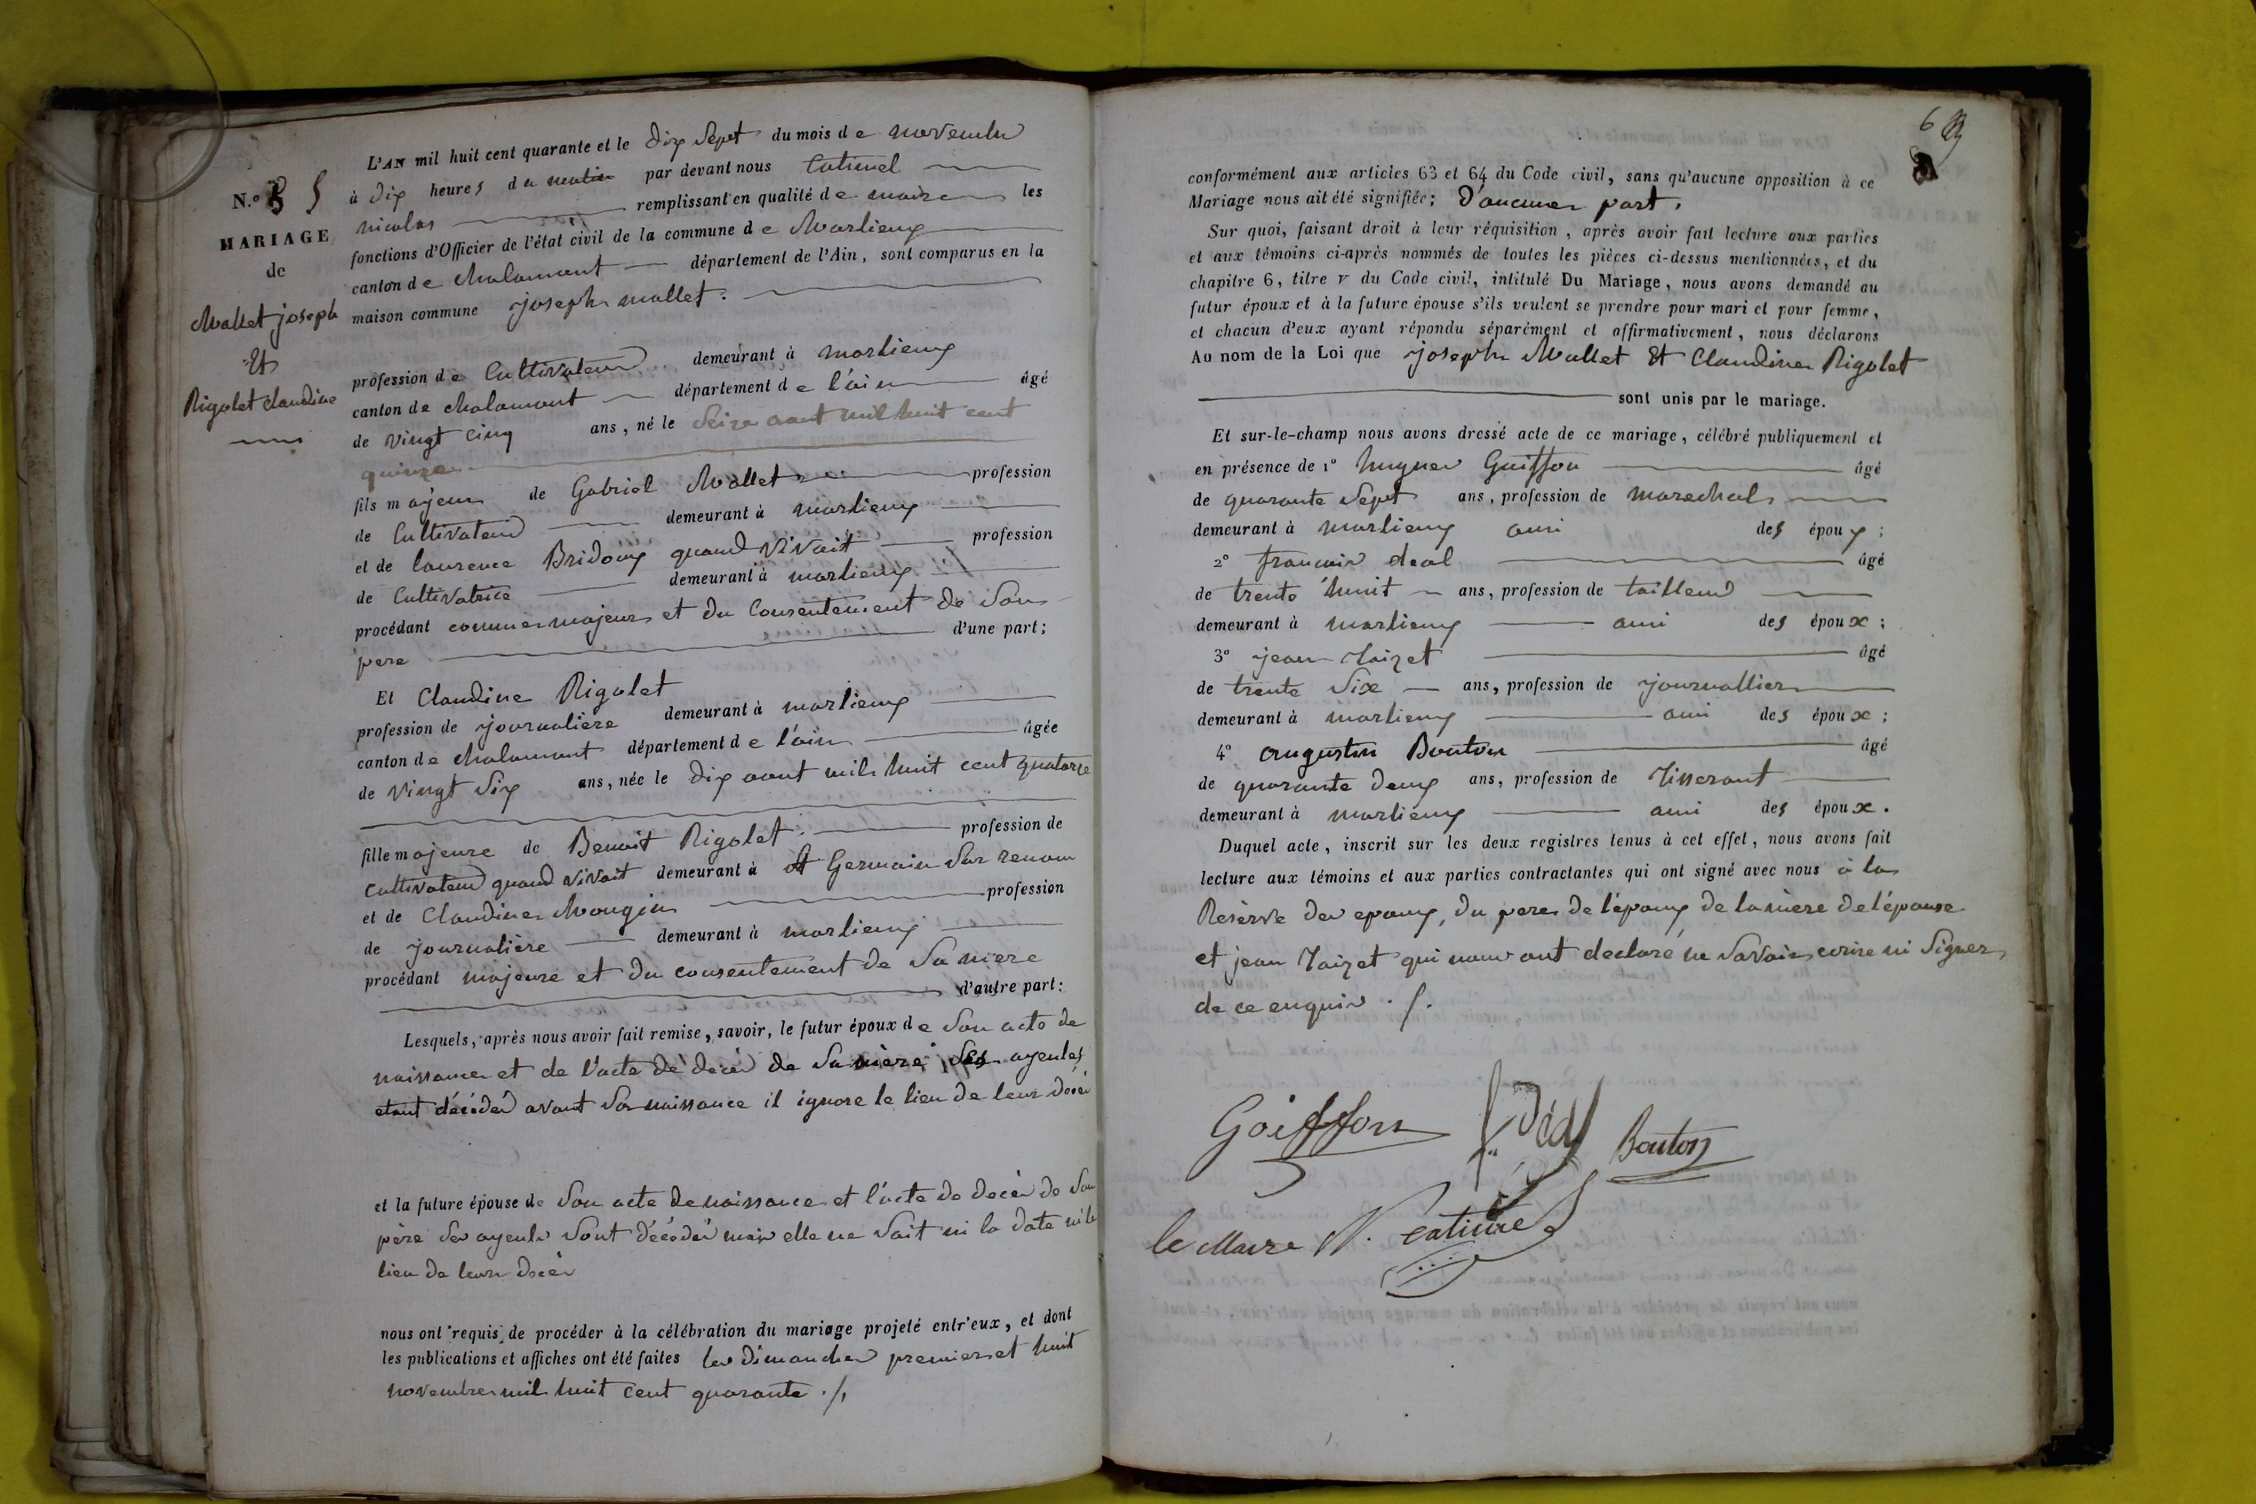 N.º 5
MARIAGE
de
Mallet joseph
Et
Rigolet claudine
L'AN mil huit cent quarante et le dix Sept du mois de novembre
à dix heures du matin par devant nous Catimel
nicolas remplissant en qualité de maire les
fonctions d'Officier de l'état civil de la commune de Marlieux
canton de chalamont département de l'Ain, sont comparus en la
maison commune joseph mallet.
profession de Cultivateur demeurant à marlieux
canton de chalamont département de l'ain âgé
de vingt cinq ans, né le Seize aout mil huit cent
quinze
fils majeur de Gabriel Mallet profession
de Cultivateur demeurant à marlieux
et de laurence Bridoux quand vivait profession
de Cultivatrice demeurant à marlieux
procédant comme majeur et du Consentement de Son
pere d'une part;
Et Claudine Rigolet
profession de journalière demeurant à marlieux
canton de chalamont département de l'ain âgée
de vingt Six ans, née le dix aout mil huit cent quatorze
fille majeure de Benoit Rigolet profession de
Cultivateur quand vivait demeurant à St Germain Sur renom
et de Claudine Mongin profession
de journalière demeurant à marlieux
procédant majeure et du consentement de Sa mere
d'autre part:
Lesquels, après nous avoir fait remise, savoir, le futur époux de Son acte de
naissance et de l'acte de décès de Sa mère Ses ayeules
etant décédés avant Sa naissance il ignore le lieu de leur décès
et la future épouse de Son acte de naissance et l'acte de décès de Son
père Ses ayeuls Sont décédés mais elle ne Sait ni la date ni le
lieu de leurs décès
nous ont requis de procéder à la célébration du mariage projeté entr'eux, et dont
les publications et affiches ont été faites les dimanches premier et huit
novembre mil huit cent quarante ./.
6
conformément aux articles 63 et 64 du Code civil, sans qu'aucune opposition à ce
Mariage nous ait été signifiée; d'aucune part.
Sur quoi, faisant droit à leur réquisition, après avoir fait lecture aux parties
et aux témoins ci-après nommés de toutes les pièces ci-dessus mentionnées, et du
chapitre 6, titre V du Code civil, intitulé Du Mariage, nous avons demandé au
futur époux et à la future épouse s'ils veulent se prendre pour mari et pour femme,
et chacun d'eux ayant répondu séparément et affirmativement, nous déclarons
Au nom de la Loi que joseph Mallet Et Claudine Rigolet
sont unis par le mariage.
Et sur-le-champ nous avons dressé acte de ce mariage, célébré publiquement et
en présence de 1º hugues Goiffon âgé
de quarante Sept ans, profession de marechal
demeurant à marlieux ami des époux;
2º francois deal âgé
de trente huit ans, profession de tailleur
demeurant à marlieux ami des époux;
3º jean Taizet âgé
de trente Six ans, profession de journallier
demeurant à marlieux ami des époux;
4º augustin Bouton âgé
de quarante deux ans, profession de Tisserant
demeurant à marlieux ami des époux.
Duquel acte, inscrit sur les deux registres tenus à cet effet, nous avons fait
lecture aux témoins et aux parties contractantes qui ont signé avec nous à la
Resèrve des epoux, du pere de l'époux de la mère de l'épouse
et jean Taizet qui nous ont declaré ne Savoir ecrire ni Signer
de ce enquis ./.
Goiffon Bouton
le Maire N. Catimel